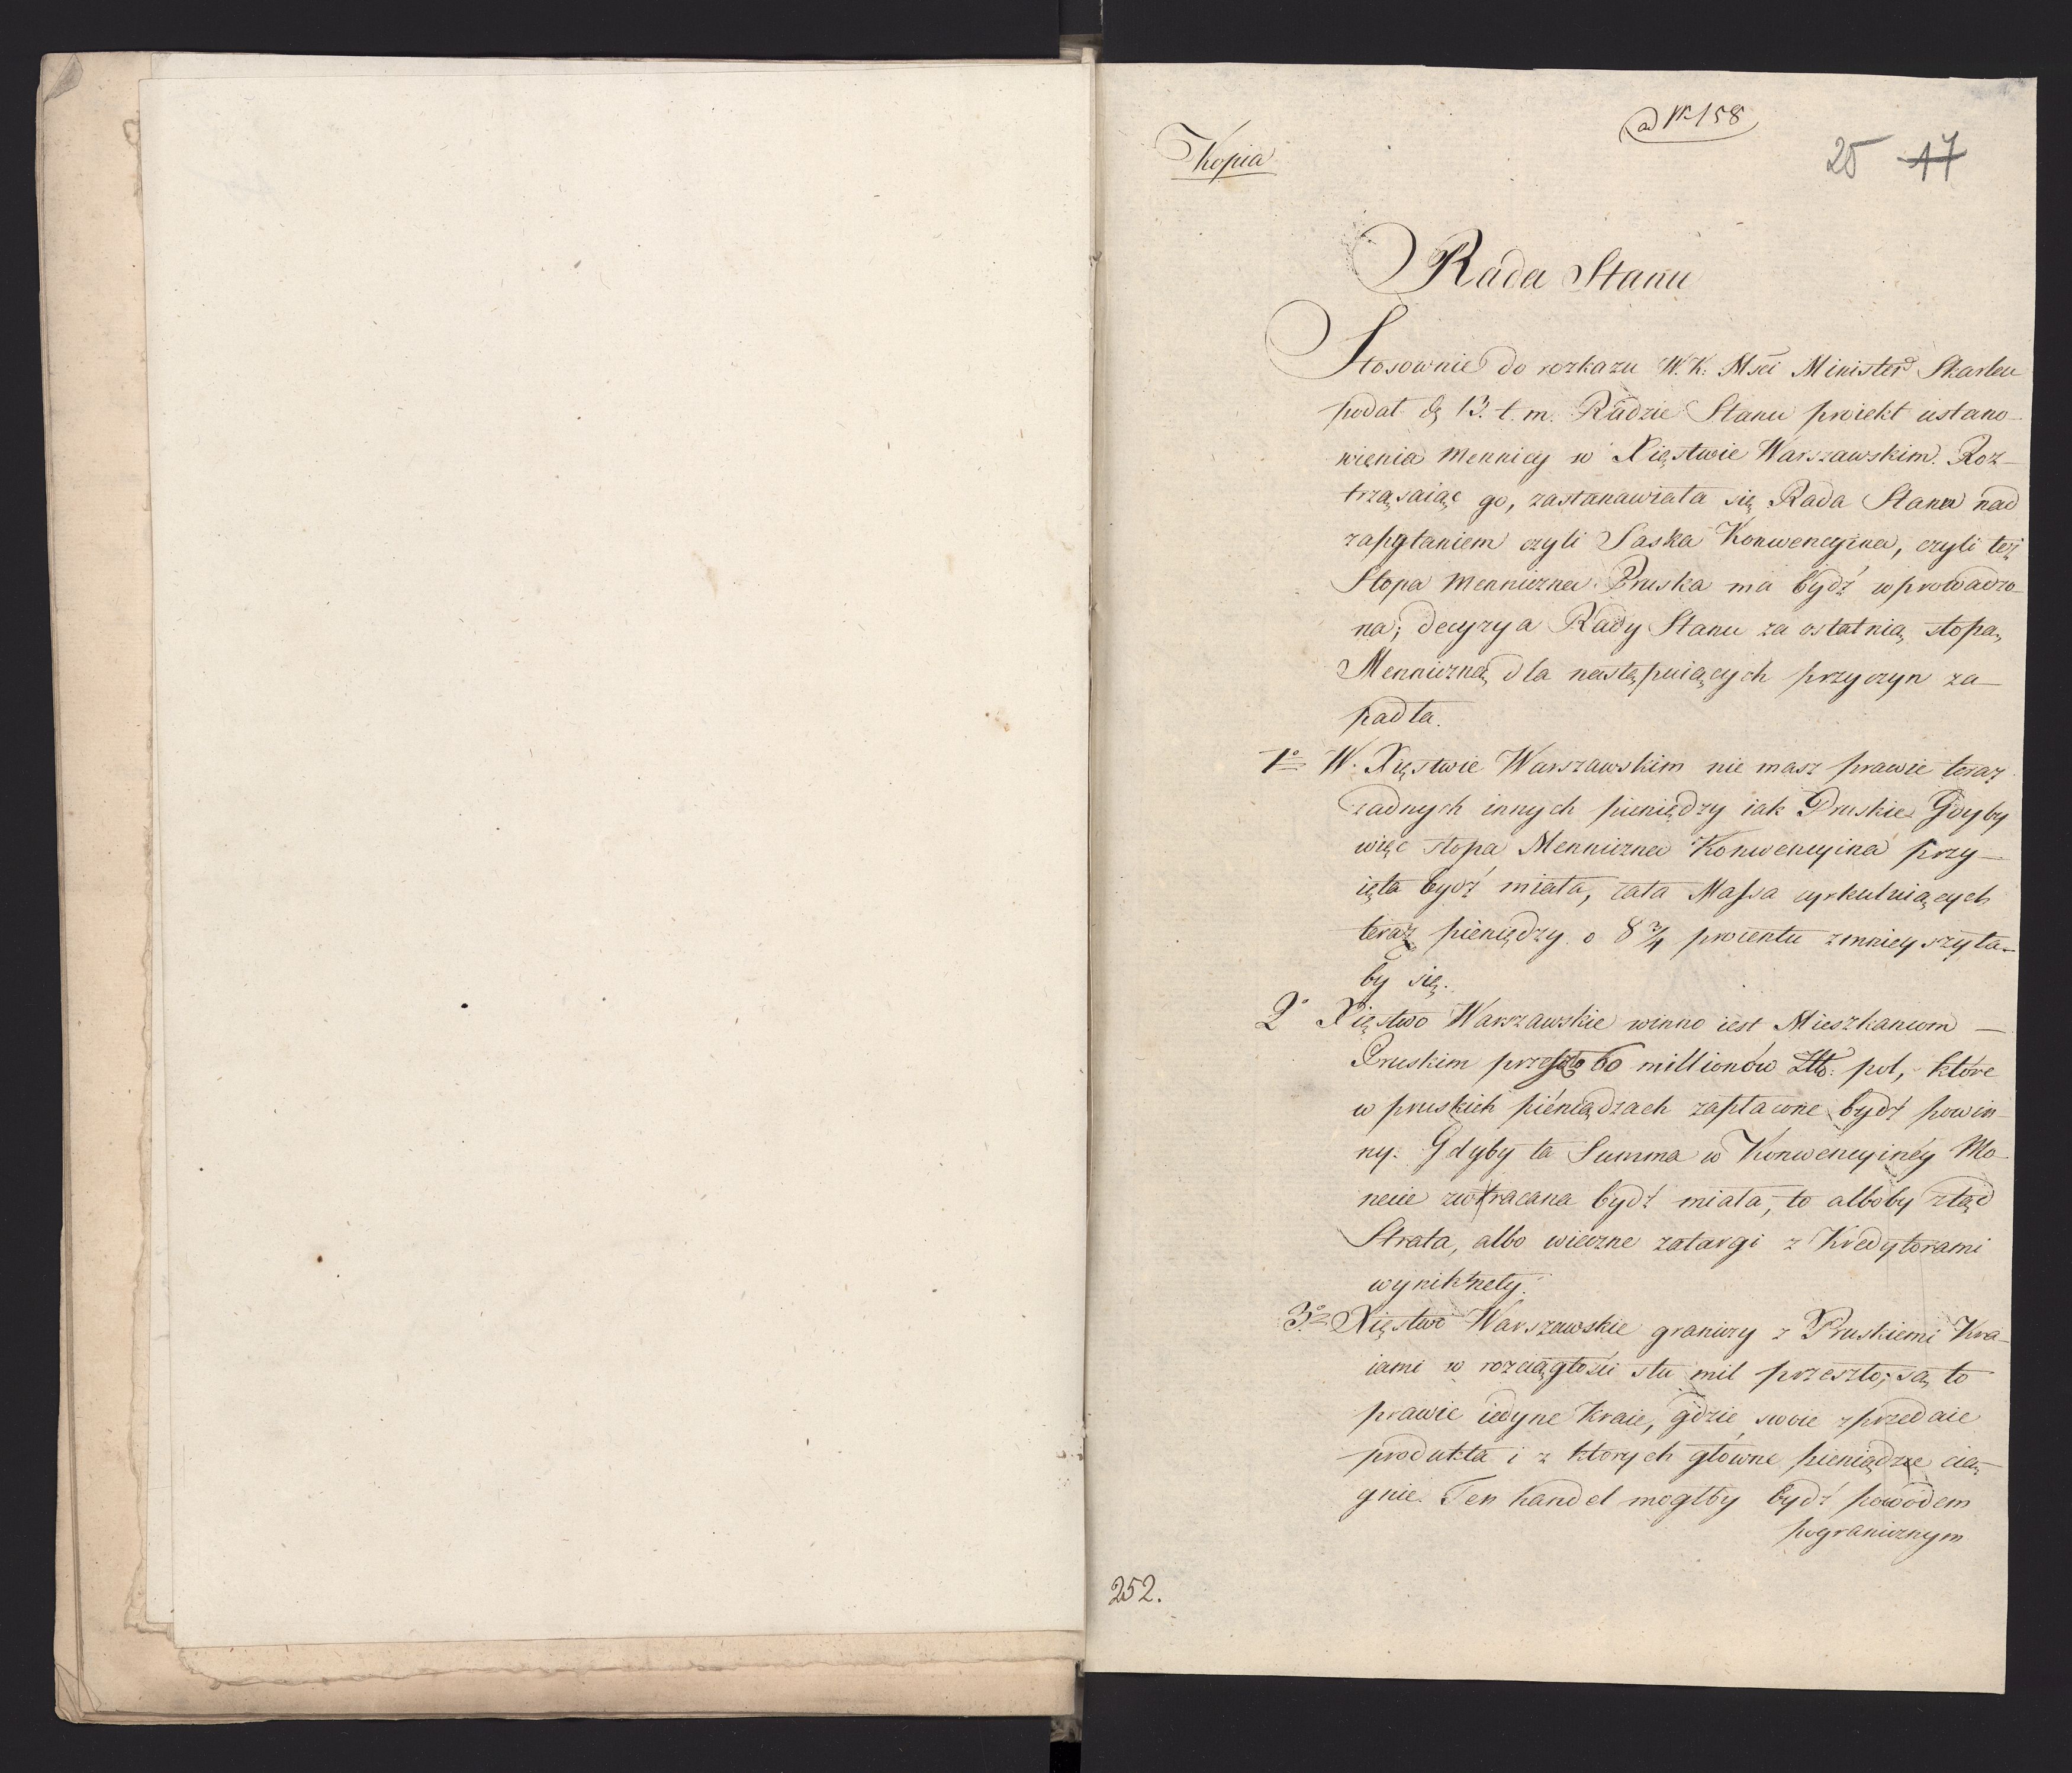 ad Nr 158
Kopia
25 17
Rada Stanu
Stosownie do rozkazu W. K. Mści Minister Skarbu
podał d. 13. t. m. Radzie Stanu proiekt ustano-
wienia Mennicy w Xięstwie Warszawskim. Roz-
trząsaiąc go, zastanawiała się Rada Stanu nad
zapytaniem czyli Saska Konwencyina, czyli też
Stopa Mennicza Pruska ma bydź wprowadzo-
na; decyzya Rady Stanu za ostatnią stopą
Menniczną dla następuiących przyczyn za-
padła.
1o W. Xięstwie Warszawskim nie masz prawie teraz
żadnych innych pieniędzy iak Pruskie Gdyby
więc stopa Mennicza Konwencyina przy-
ięta bydź miała, cała Massa cyrkuluiących
teraz pieniędzy o 8 3/4 procentu zmnieyszyła-
by się.
2o Xięstwo Warszawskie winno iest Mieszkańcom -
Pruskim przeszło 60 millionów Złło: pol, które
w pruskich piéniądzach zapłacone bydź powin-
ny. Gdyby ta Summa w Konwencyinéy Mo-
necie zwracana bydź miała, to alboby ztąd
Strata, albo wieczne zatargi z Kredytorami
wyniknęły.
3o Xięstwo Warszawskie graniczy z Pruskiemi Kra-
iami w rozciągłości stu mil przeszło; są to
prawie iedyne Kraie, gdzie swoie zprzedaie
produkta i z ktorych główne pieniądze cią-
gnie. Ten handel mogłby bydź powodem
pogranicznym
252.